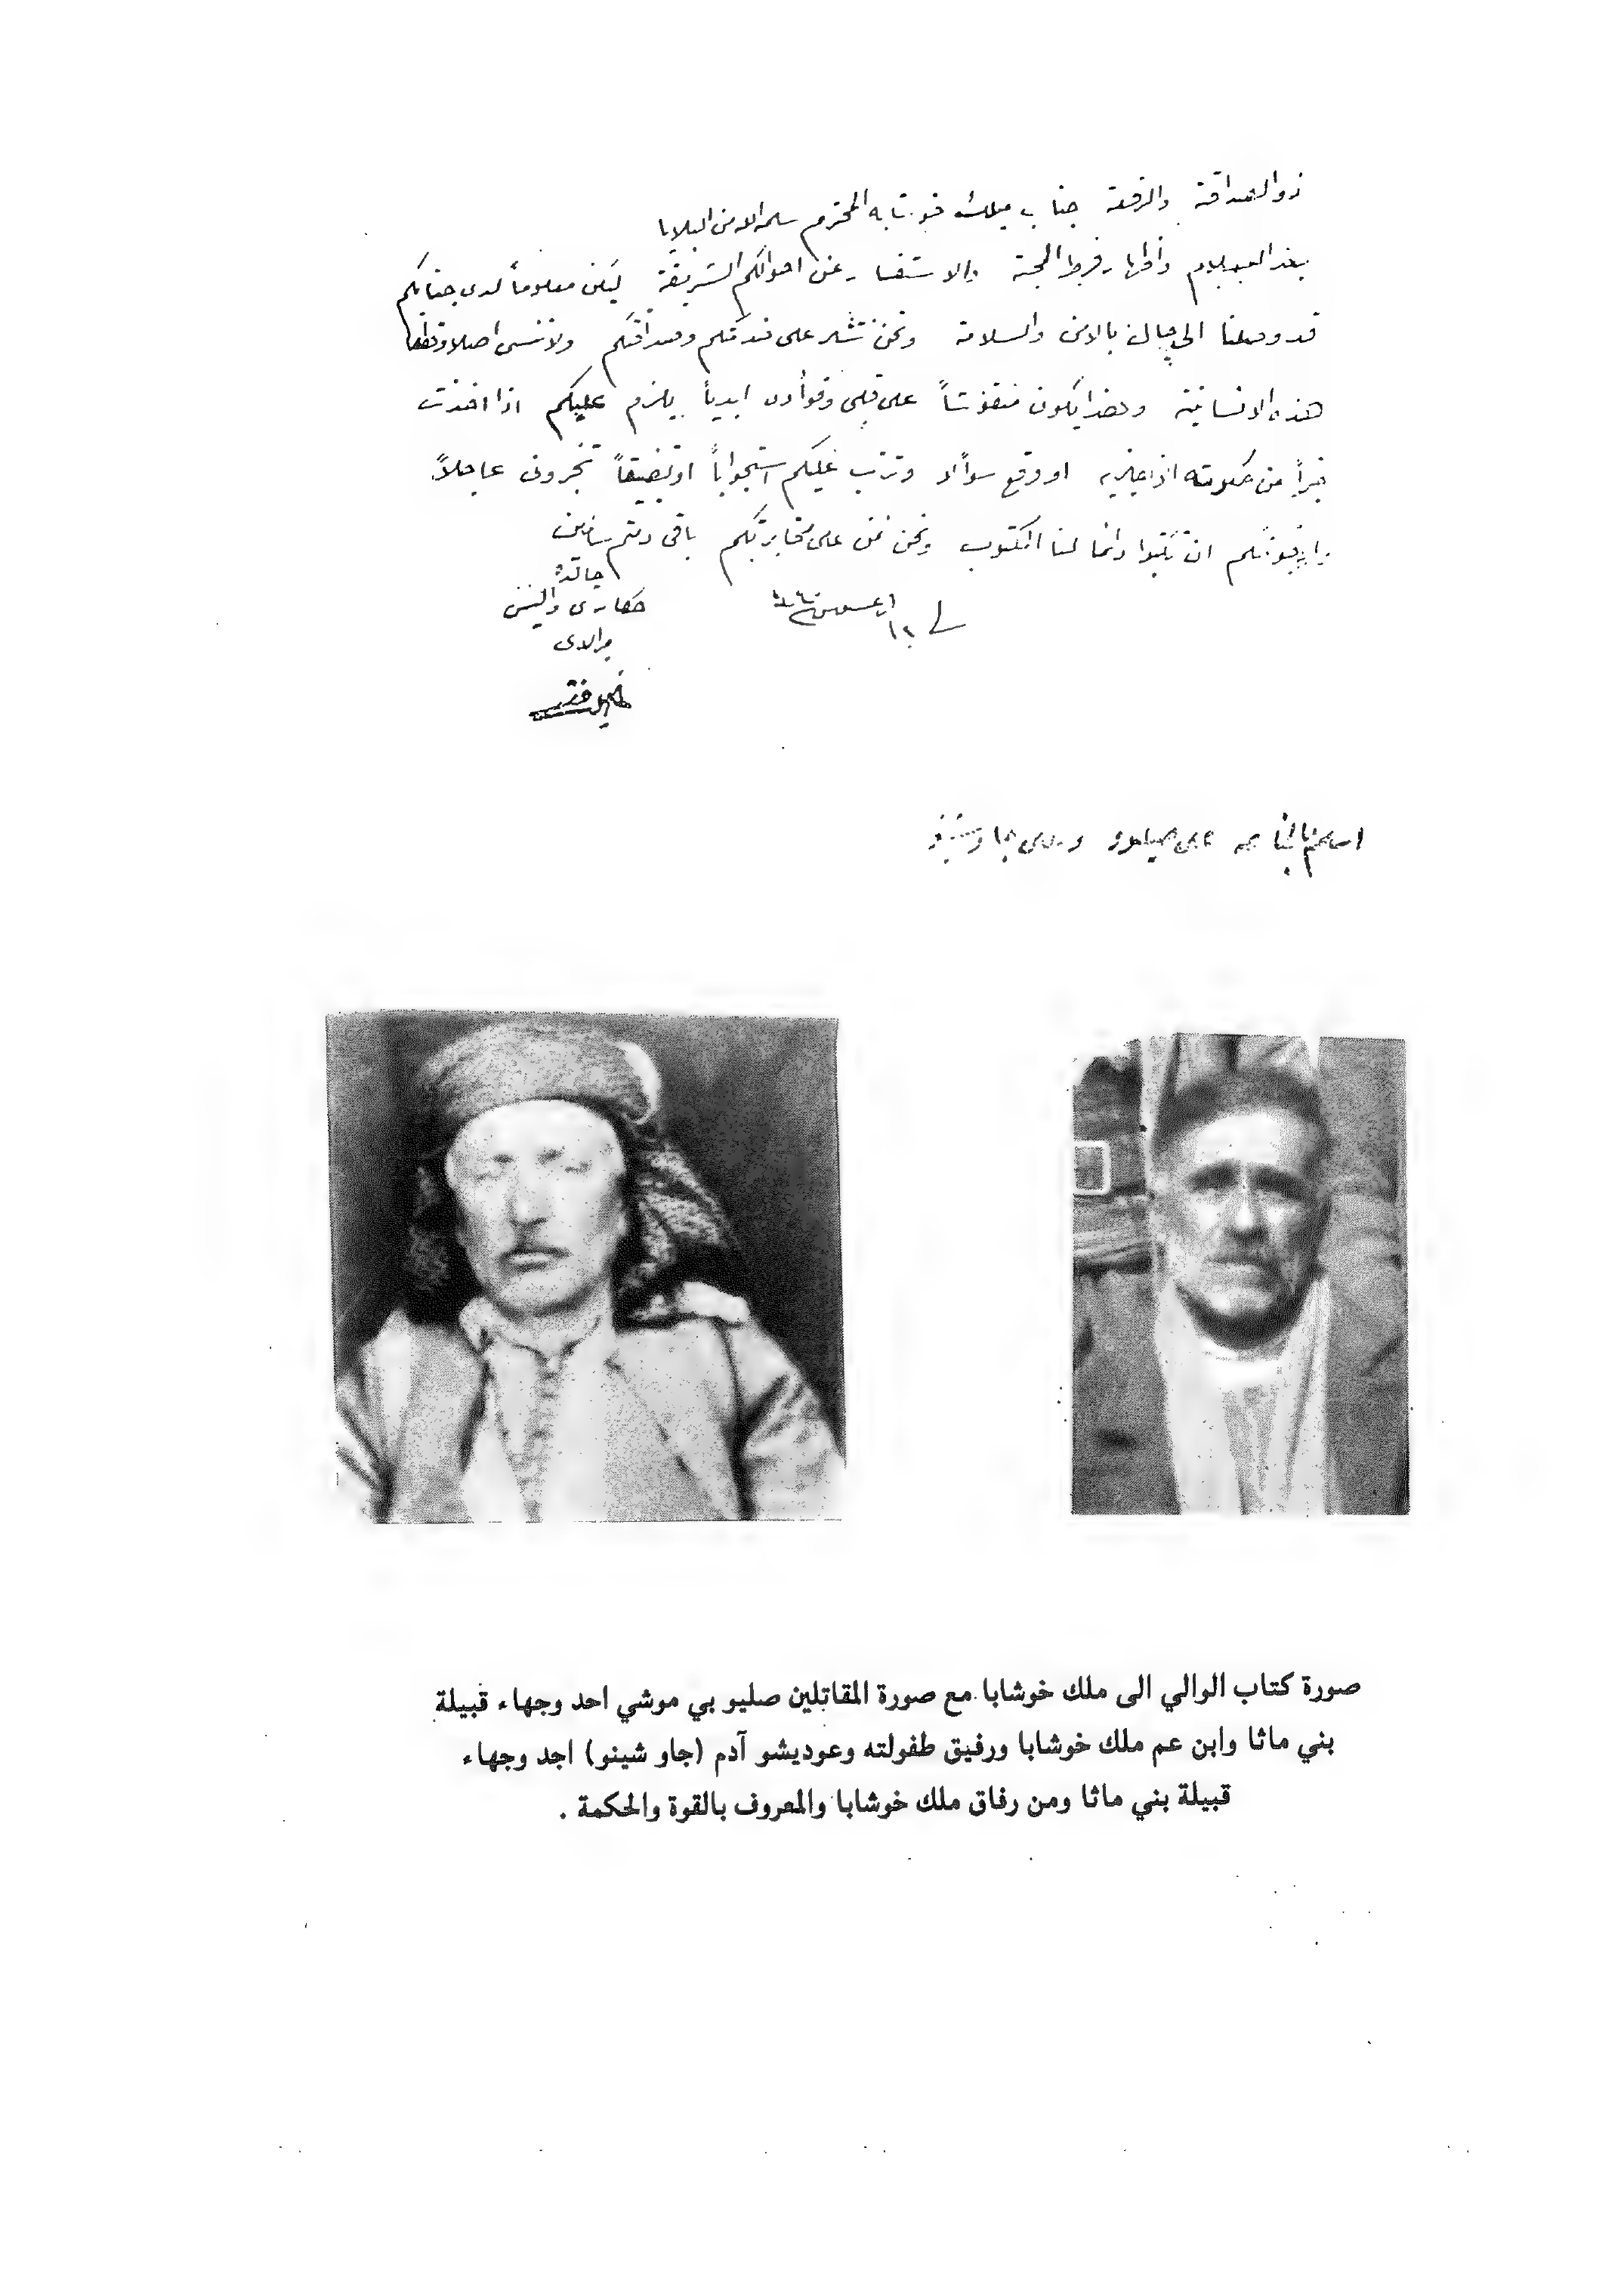 ذو الصداقة والرفعة جناب ملك خوشابه المحترم سلمه الله من البلايا
بعد السلام واظهار فرط المحبة والاستفسار عن احوالكم الشريفة ليكن معلوماً لدى جنابكم
قد وصلنا الى جال بالامن والسلامة ونحن نتشكر على خدمتكم وصداقتكم ولا ننسى اصلا وقطعا
هذه الانسانية وهذا يكون منقوشاً على قلبي وفوأدى ابدياً يلزم عليكم اذا اخذت
خبراً من حكومته او وقع سوأل وترتب عليكم استجواباً او تضييقاً تخبرونى عاجلاً
ان تكتبوا دائما لنا المكتوب ونحن نمن على مخابرتكم باقى دمتم سالمين
حكارى واليسى
فى ١٢ اغستوس
صورة كتاب الوالي الى ملك خوشابا مع صورة المقاتلين صليو بي موشي احد وجهاء قبيلة
بني ماثا وابن عم ملك خوشابا ورفيق طفولته وعوديشو آدم (جاو شينو) احد وجهاء
قبيلة بني ماثا ومن رفاق ملك خوشابا والمعروف بالقوة والحكمة .